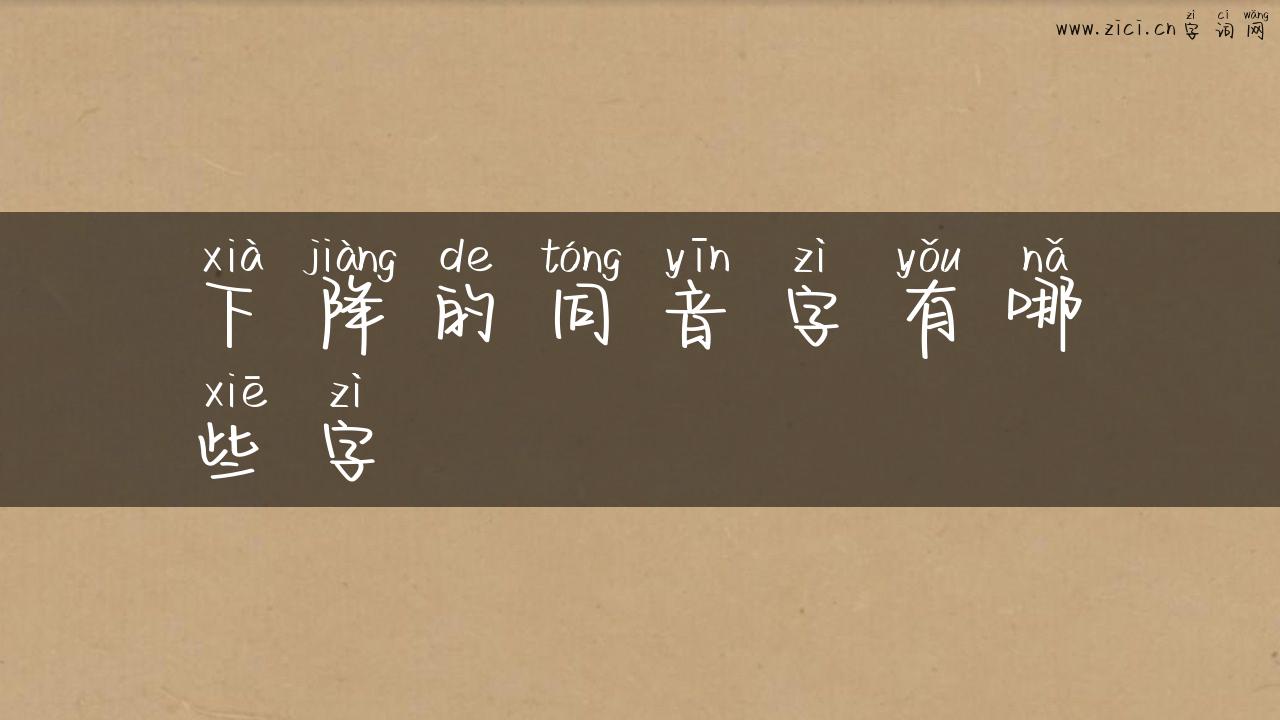 zì cí wǎng
www.zici.cn 字 词 网
xià jiàng de tóng yīn zì yǒu nǎ
下 降 的 同 音 字 有 哪
xiē zì
些 字